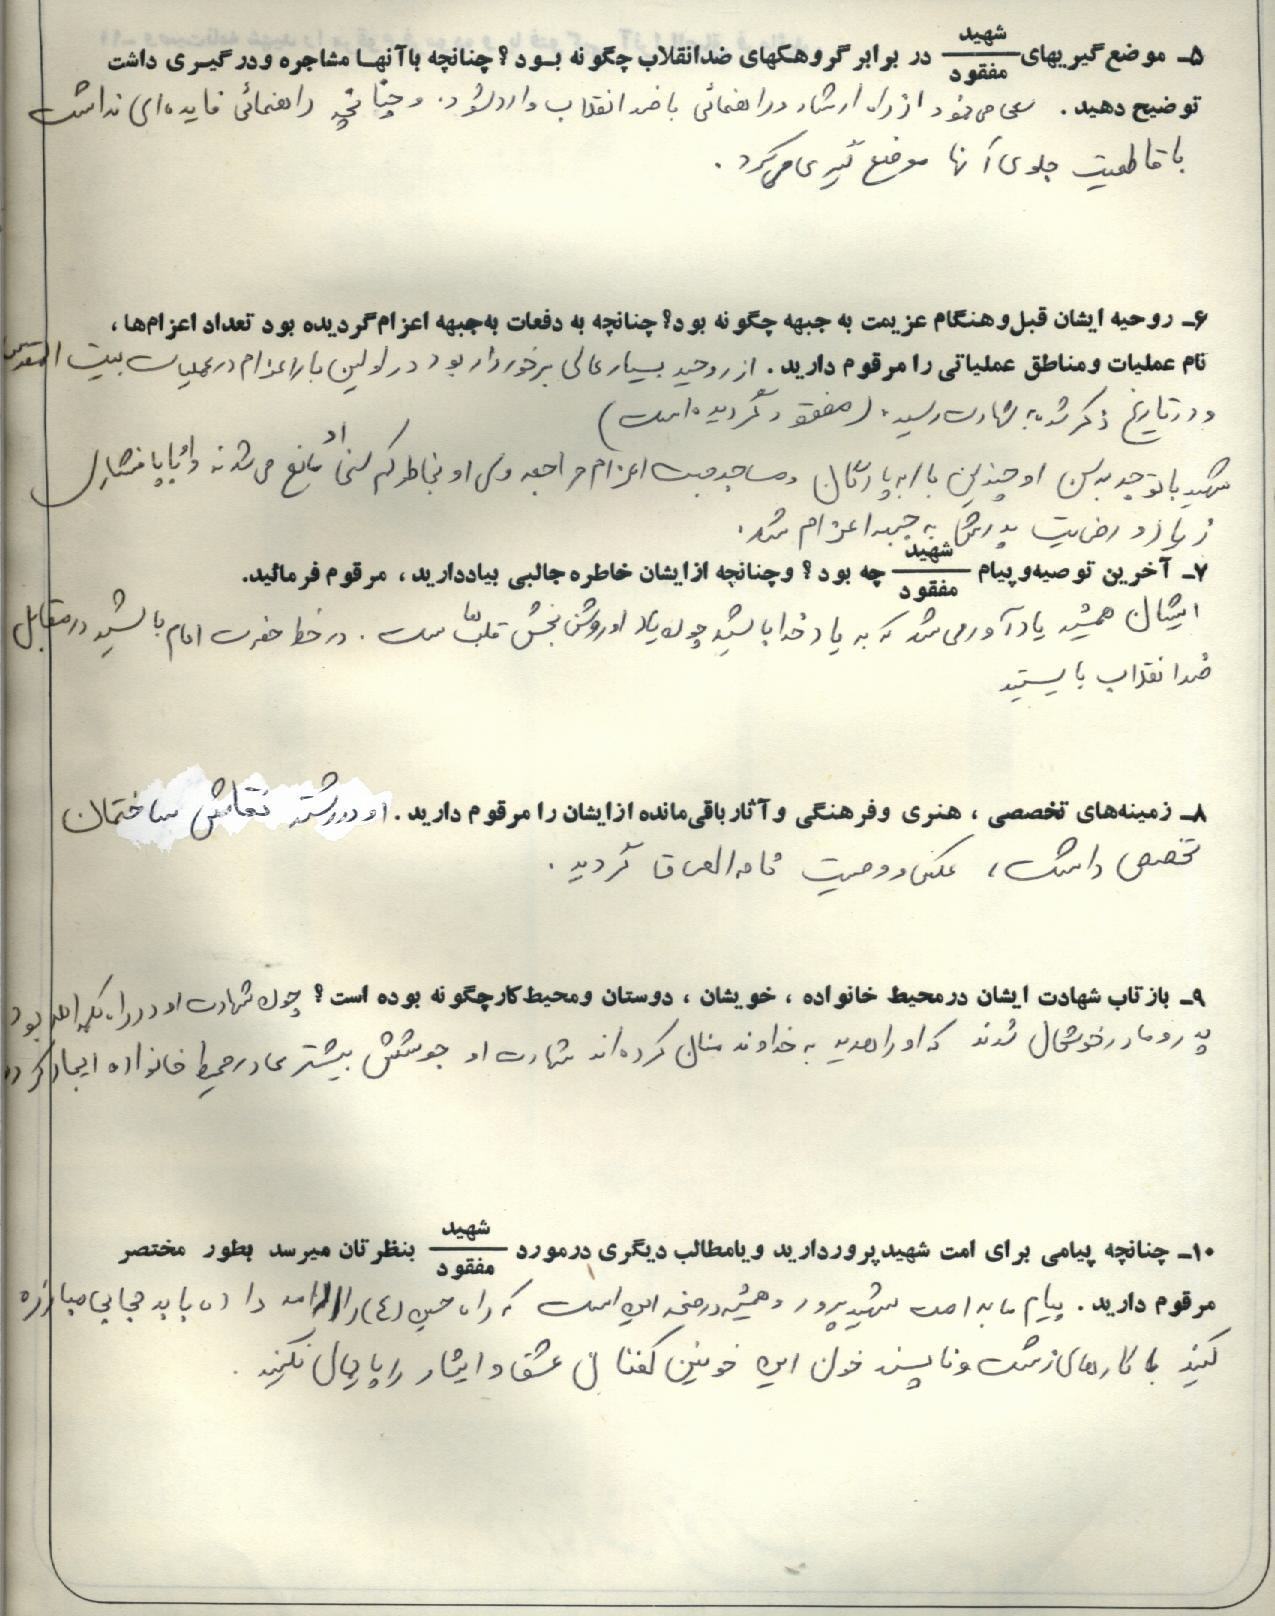 ۵ـ موضع‌گیریهای شهید/مفقود در برابر گروهکهای ضدانقلاب چگونه بود؟ چنانچه با آنها مشاجره و درگیری داشت
توضیح دهید. سعی می‌نمود از راه ارشاد و راهنمائی با ضد انقلاب وارد شود. و چنانچه راهنمائی فایده‌ای نداشت
با قاطعیت جلوی آنها موضع گیری می‌کرد.
۶ـ روحیه ایشان قبل و هنگام عزیمت به جبهه چگونه بود؟ چنانچه به دفعات به‌جبهه اعزام گردیده بود تعداد اعزام‌ها،
نام عملیات و مناطق عملیاتی را مرقوم دارید. از روحیه بسیار عالی برخوردار بود در اولین بار اعزام در عملیات بیت المقدس
و در تاریخ ذکر شده به شهادت رسید. (مفقود گردیده است)
شهید با توجه به سن او چندین بار به پادگان و مساجد جهت اعزام مراجعه ولی او بخاطر کم سنی او مانع می‌شدند و با پافشاری
زیاد و رضایت پدرش به جبهه اعزام شد.
۷ـ آخرین توصیه و پیام شهید/مفقود چه بود؟ و چنانچه از ایشان خاطره جالبی بیاد دارید، مرقوم فرمائید.
ایشان همیشه یادآور می‌شد که به یاد خدا باشید چون یاد او روشنی بخش قلب‌ها ست. در خط حضرت امام باشید در مقابل
ضد انقلاب بایستید
۸ـ زمینه‌های تخصصی، هنری و فرهنگی و آثار باقی‌مانده از ایشان را مرقوم دارید. او در رشته نقاشی ساختمان
تخصص داشت، عکس و وصیت نامه الصاق گردید.
۹ـ بازتاب شهادت ایشان در محیط خانواده، خویشان، دوستان و محیط کار چگونه بوده است؟ چون شهادت او در راه الله بود
پدر و مادر خوشحال شدند که او را هدیه به خداوند منان کرده‌اند شهادت او جوشش بیشتری در محیط خانواده ایجاد کرد
۱۰ـ چنانچه پیامی برای امت شهیدپرور دارید و یا مطالب دیگری در مورد شهید/مفقود بنظرتان میرسد بطور مختصر
مرقوم دارید. پیام ما به امت شهید پرور و همیشه در صحنه این است که راه حسین (ع) را ادامه داده با بد حجابی مبارزه
کنید با کارهای زشت و ناپسند خون این خونین کفنان عشق و ایثار را پایمال نکنید.